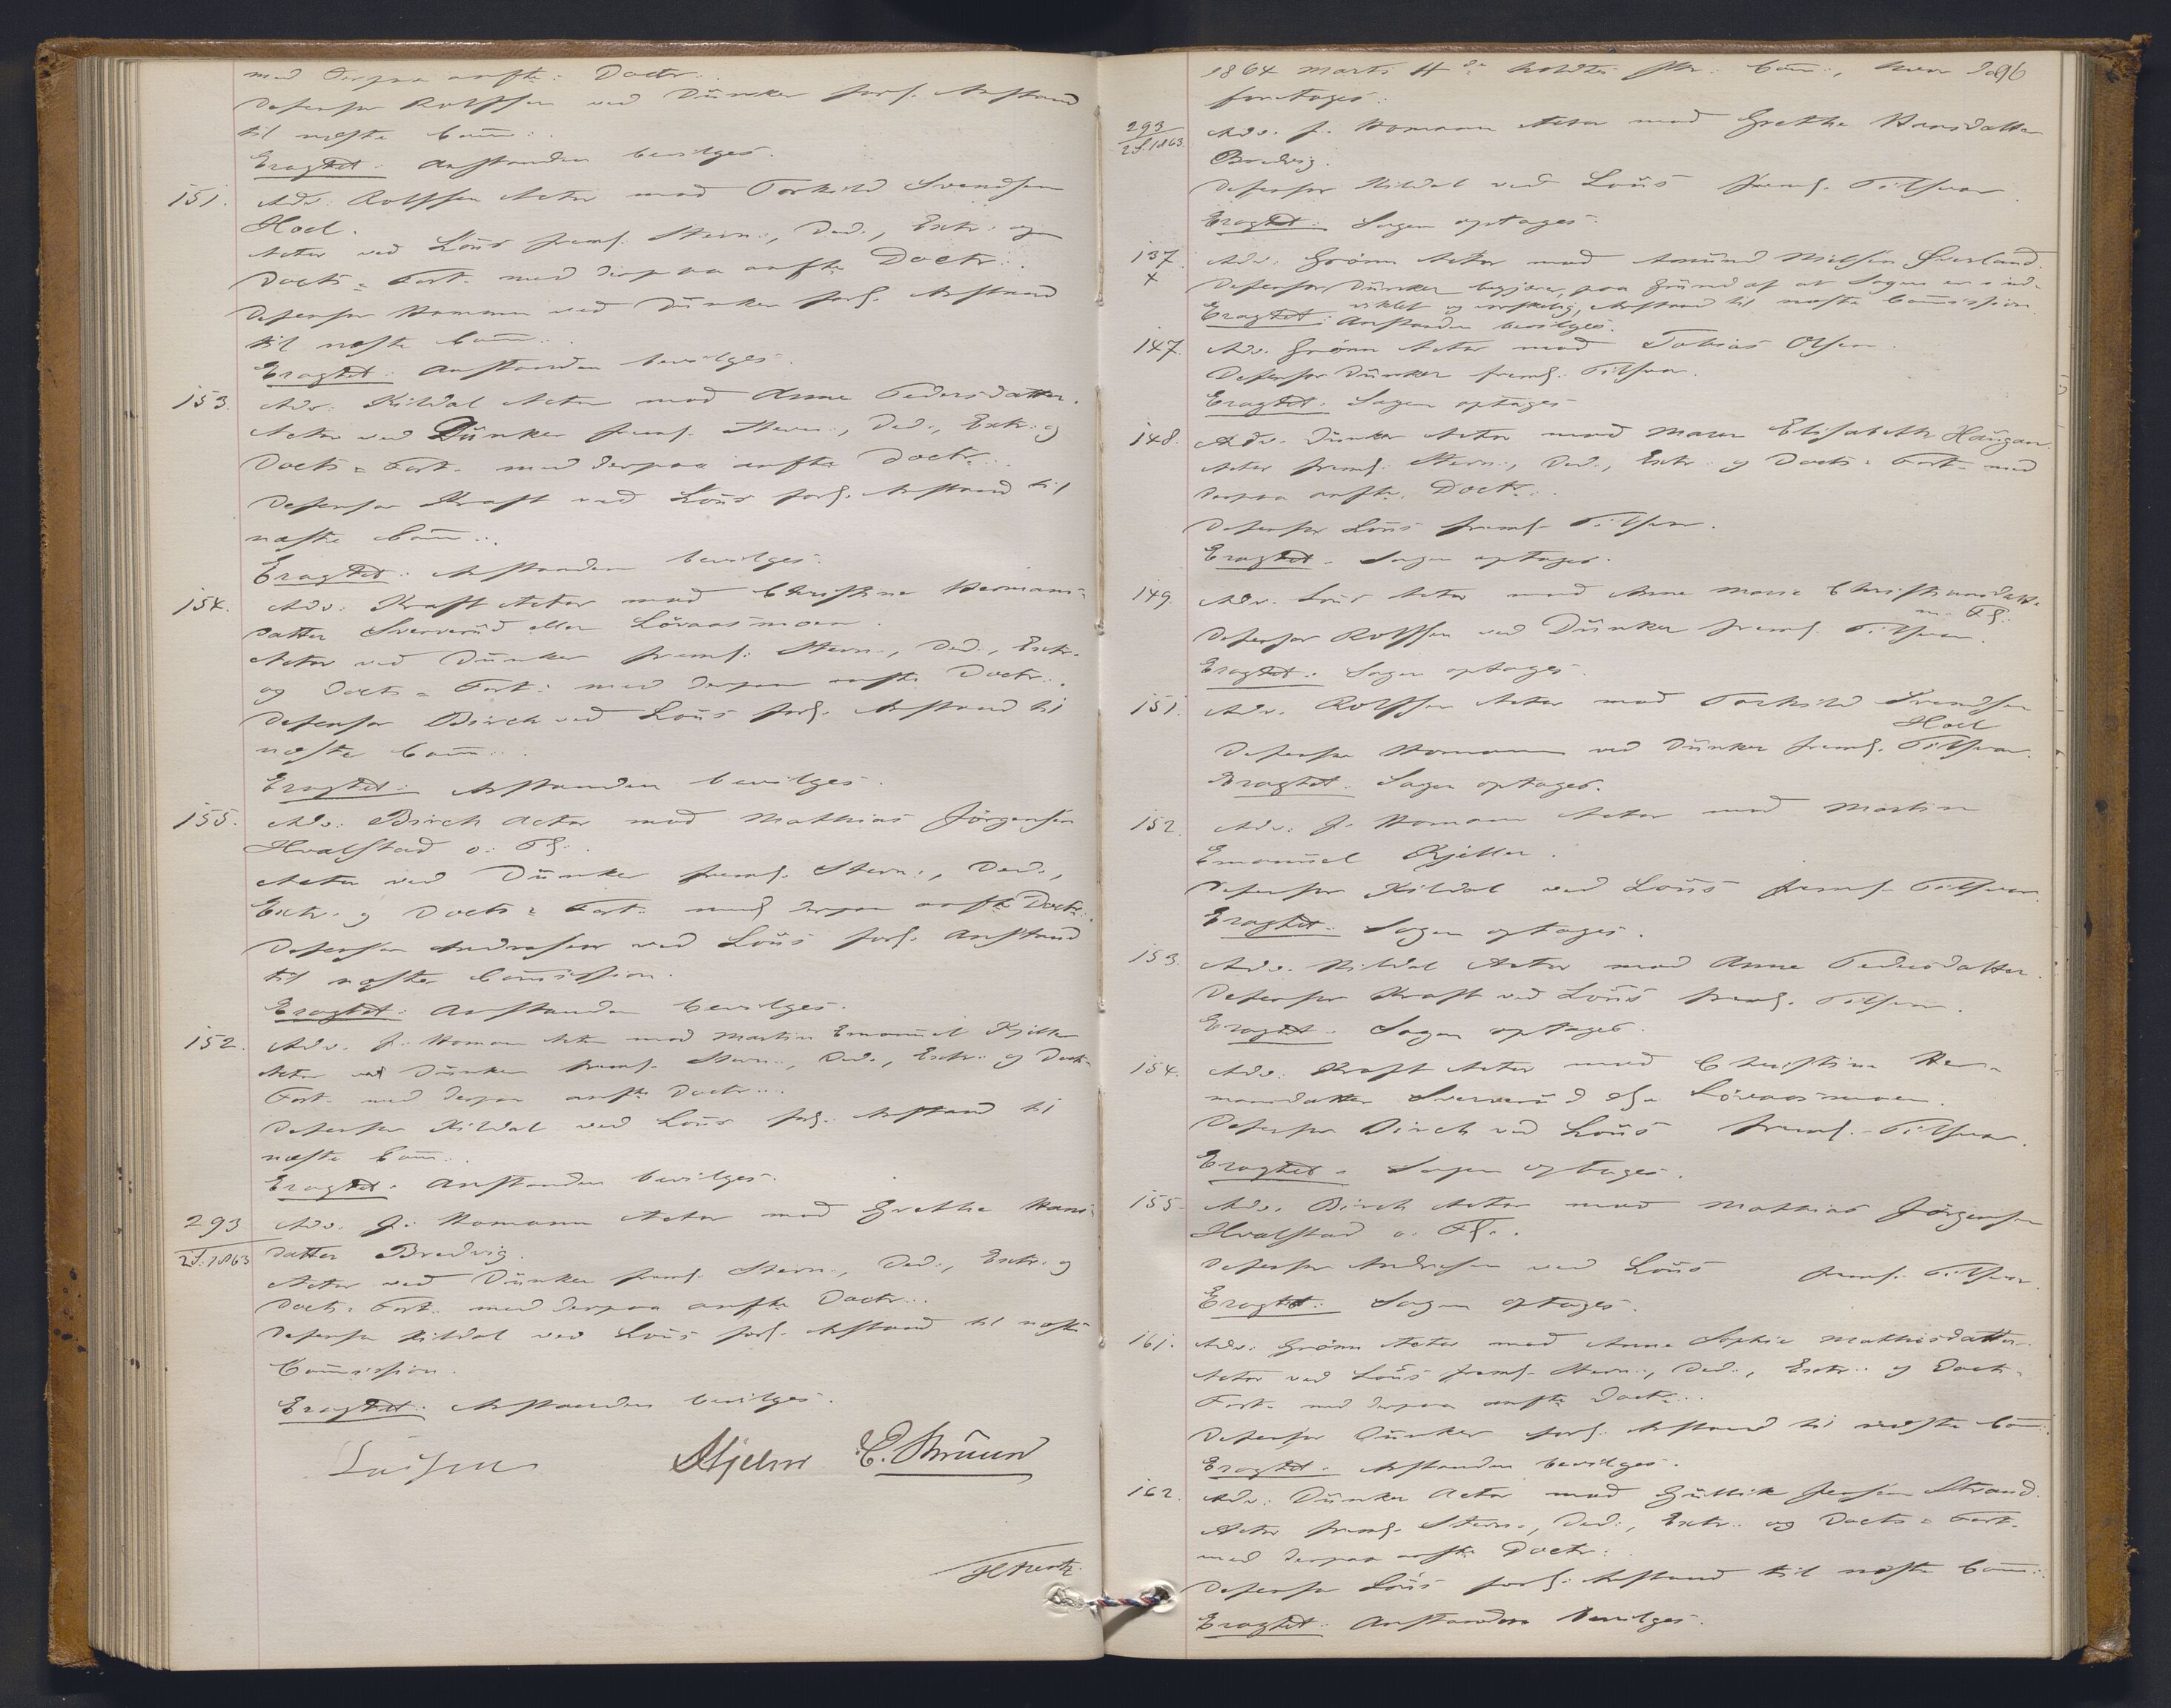 med derpaa anfte: Doctr:.
Defensor Rolffsen ved Dünker forl. Anstand
til næste Com̄:.
Eragtet: Anstanden bevilges.
151. Adv: Rolffsen Actor mod Torkild Svendsen
Hoel.
Actor ved Loüs freml. Stevn:, Ded:, Extr: og
Docts= Fort. med derpaa anfte Doctr:.
Defensor Homann ved Dünker forl. Anstand
til næste Com̄:.
Eragtet: Anstanden bevilges.
153. Adv: Kildal Actor mod Anne Pedersdatter.
Actor ved Dünker freml. Stevn:, Ded:, Extr: og
Docts= Fort. med derpaa anfte Doctr:.
Defensor Kraft ved Loüs forl. Anstand til
næste Com̄:.
Eragtet: Anstanden bevilges.
154. Adv: Kraft Actor mod Christine Hermans=
datter Sververüd eller Löraasmoen.
Actor ved Dünker freml: Stevn:, Ded:, Extr.
og Docts= Fort: med derpaa anfte Doctr:.
Defensor Birch ved Loüs forl. Anstand til
næste Com̄:.
Eragtet: Anstanden bevilges.
155. Adv: Birch Actor mod Mathias Jörgensen
Hvalstad o: Fl:.
Actor ved Dünker freml. Stevn:, Ded:,
Extr. og Docts= Fort: med derpaa anfte Doctr:.
Defensor Andresen ved Loüs forl. Anstand
til næste Com̄ission.
Eragtet: Anstanden bevilges.
152. Adv. J. Homann Actor mod Martin Emanüel Kjeller
Actor ved Dünker freml. Stevn:, Ded:, Extr: og Docts=
Fort. med derpaa anfte Doctr:.
Defensor Kildal ved Loüs forl. Anstand til
næste Com̄:.
Eragtet. Anstanden bevilges.
293 Adv. J. Homann Actor mod Grethe Hans=
2S:1863 datter Bredvig.
Actor ved Dünker freml. Stevn:, Ded:, Extr: og
Docts= Fort. med derpaa anfte Doctr:.
Defensor Kildal ved Loüs forl. Anstand til næste
Com̄ission.
Eragtet: Anstanden bevilges.
Hjelm C. Bruun
1864 Marts 4de holdtes Com̄:, hvor da 96
foretoges:
293 Adv. J. Homann Actor mod Grethe Hansdatter
2S.1863. Bredvig.
Defensor Kildal ved Loüs freml. Tilsvar.
Eragtet: Sagen optages.
137. Adv. Grönn Actor mod Amünd Nielsen Överland.
x Defensor Dünker begjærer, paa Gründ af at Sagen er ind=
viklet og vanskelig, Anstand til næste Com̄ission.
Eragtet: Anstanden bevilges.
147. Adv. Grönn Actor mod Tobias Olsen.
Defensor Dünker freml. Tilsvar.
Eragtet. Sagen optages
148. Adv. Dünker Actor mod Maren Elisabeth Haügan.
Actor freml: Stevn:, Ded:, Extr: og Docts= Fort. med
derpaa anfte. Doctr:.
Defensor Loüs freml. Tilsvar.
Eragtet. Sagen optages.
149. Adv. Loüs Actor mod Anne Marie Christiansdatter
m: Fl:
Defensor Rolffsen ved Dünker freml. Tilsvar.
Eragtet: Sagen optages.
151. Adv. Rolffsen Actor mod Torkild Svendsen
Hoel
Defensor Homann ved Dünker freml. Tilsvar.
Eragtet. Sagen optages.
152. Adv: J. Homann Actor mod Martin
Emanüel Kjeller.
Defensor Kildal ved Loüs freml. Tilsvar.
Eragtet. Sagen optages.
153. Adv. Kildal Actor mod Anne Pedersdatter.
Defensor Kraft ved Loüs freml. Tilsvar.
Eragtet. Sagen optages.
154. Adv. Kraft Actor mod Christine Her=
mansdatter Sververüd elr Löraasmoen.
Defensor Birch ved Loüs freml. Tilsvar.
Eragtet. Sagen optages.
155. Adv. Birch Actor mod Mathias Jörgensen
Hvalstad o. Fl:.
Defensor Andresen ved Loüs freml. Tilsvar.
Eragtet: Sagen optages.
161. Adv. Grönn Actor mod Anne Sophie Mathisdatter.
Actor ved Loüs freml. Stevn:, Ded:, Extr: og Docts=
Fort. med derpaa anfte Doctr:.
Defensor Dünker forl. Anstand til næste Com̄:.
Eragtet. Anstanden bevilges.
162. Adv: Dünker Actor mod Güllik Jensen Strand.
Actor freml. Stevn:, Ded:, Extr: og Docts= Fort.
med derpaa anfte Doctr:.
Defensor Loüs forl. Anstand til næste Com̄:.
Eragtet: Anstanden bevilges.